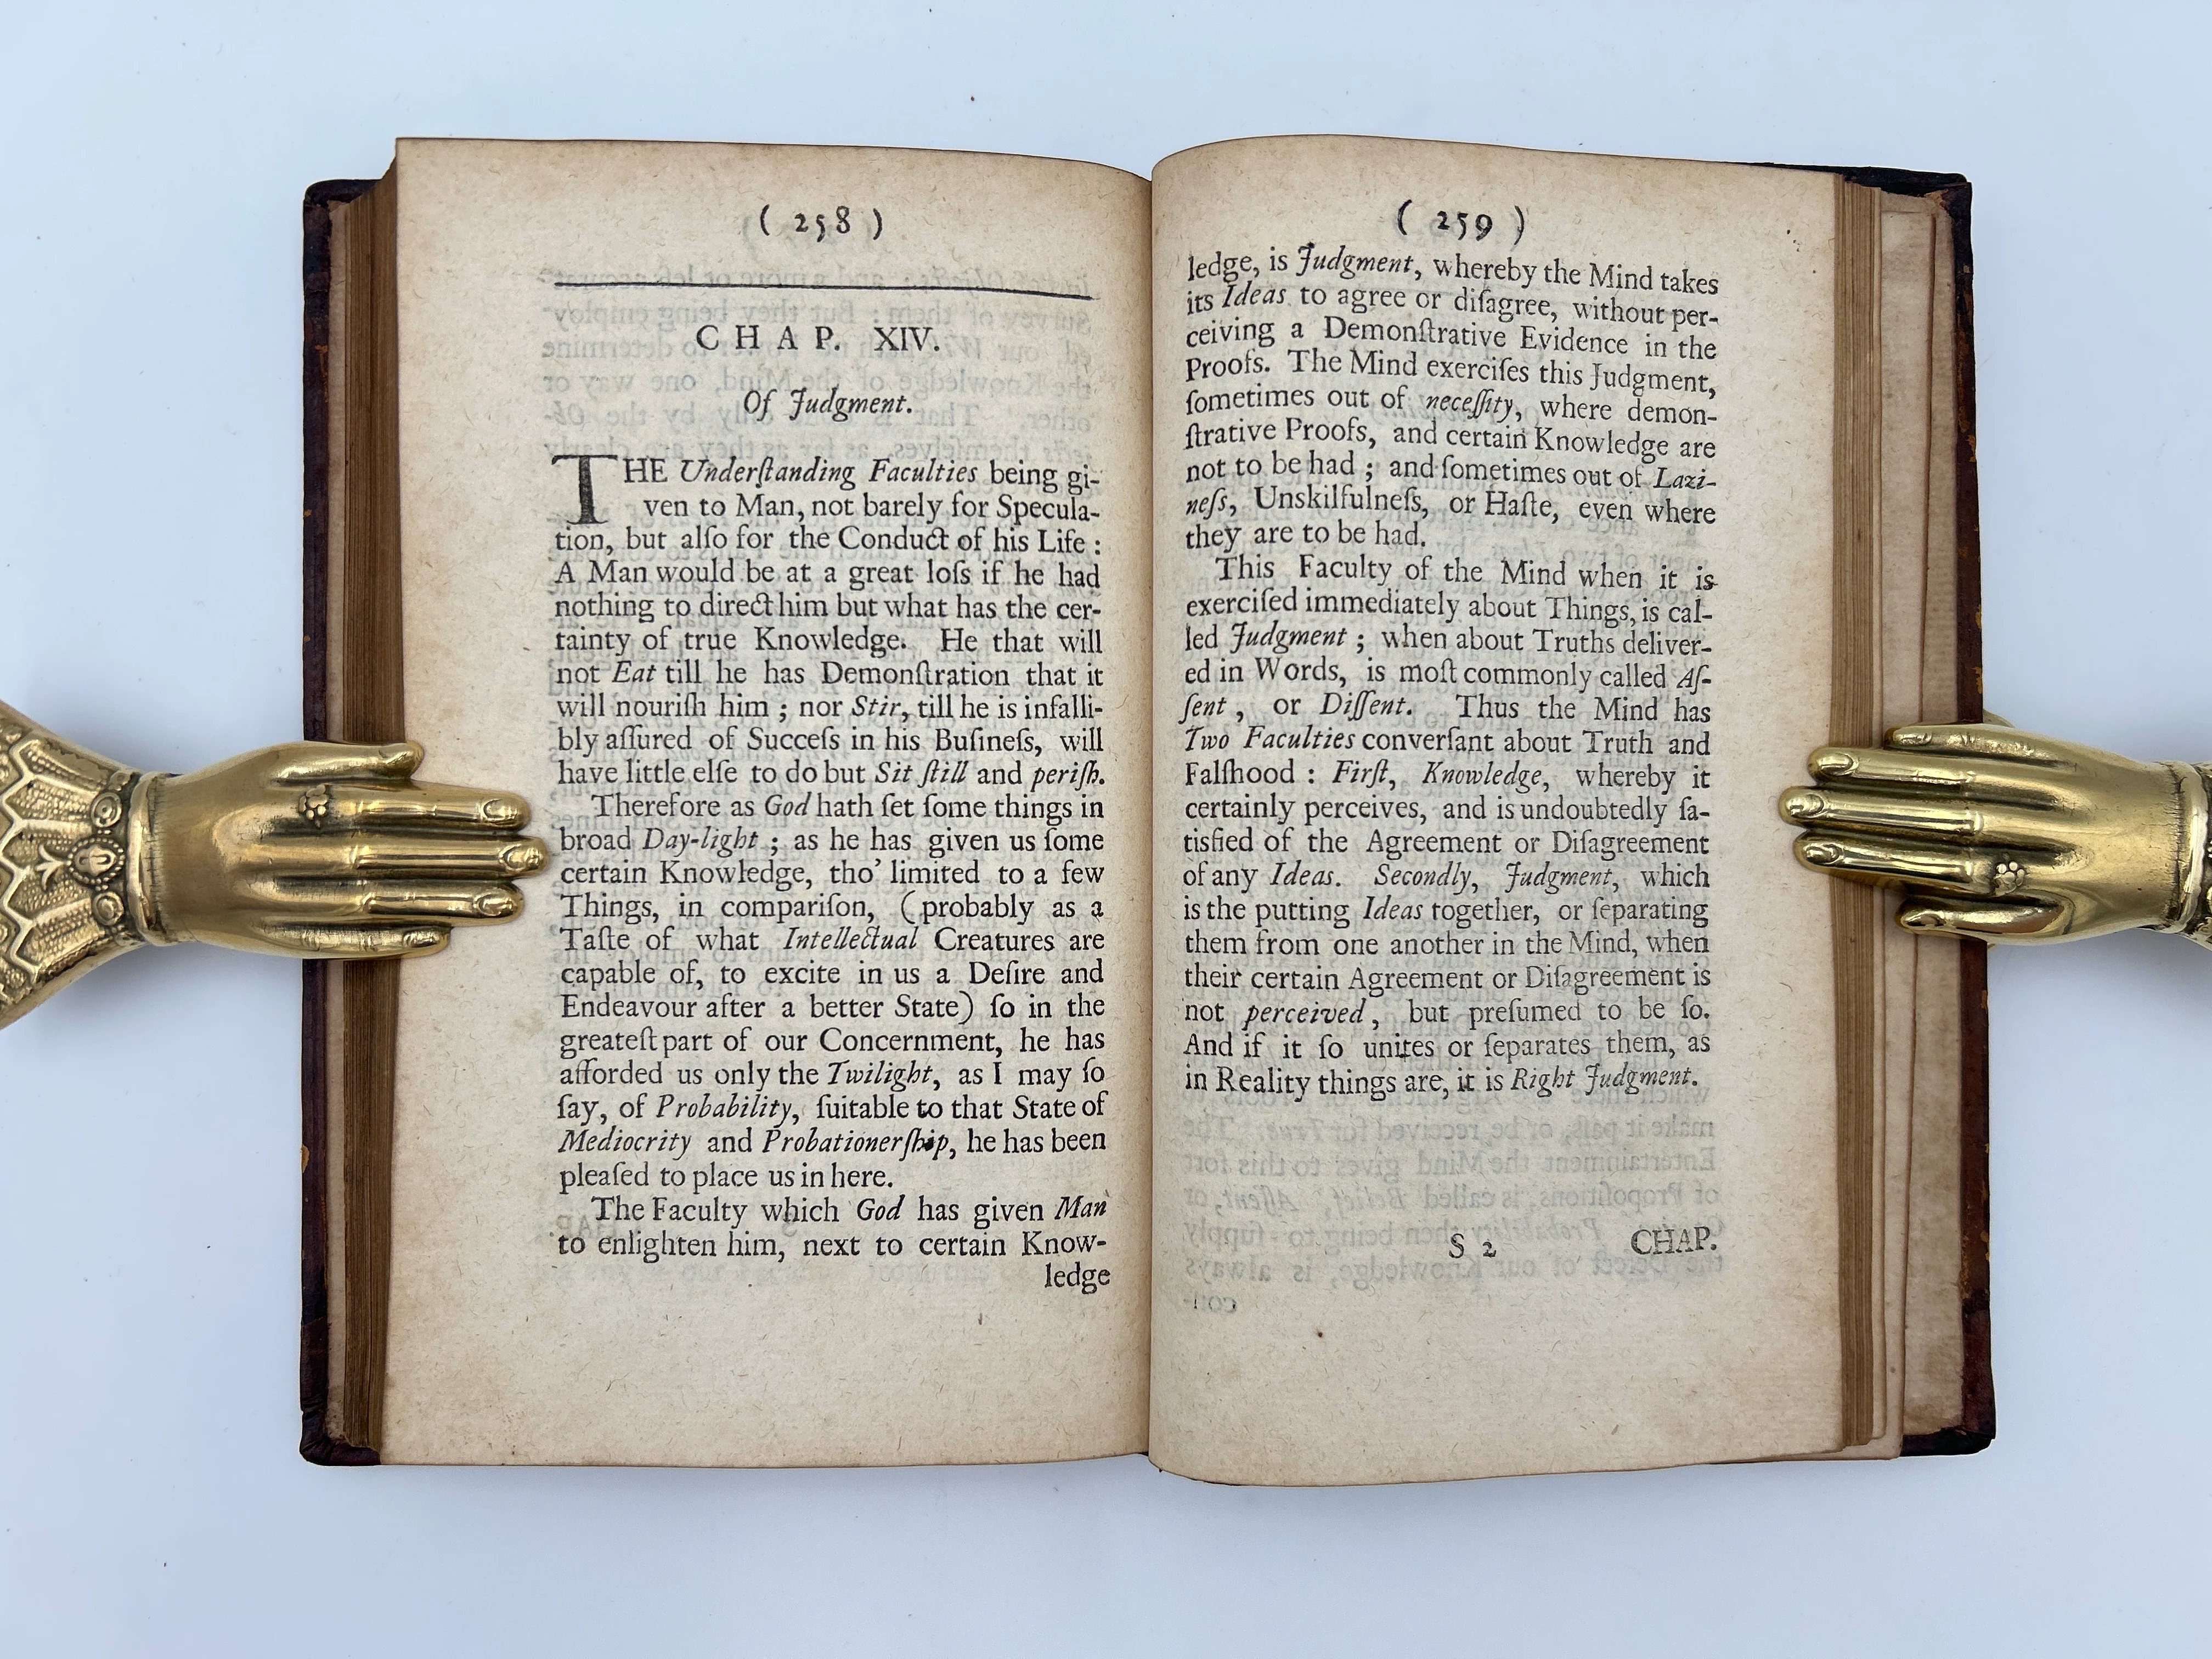 ( 258 )
CHAP. XIV.
Of Judgment.
THE Underſtanding Faculties being gi-
ven to Man, not barely for Specula-
tion, but alſo for the Conduct of his Life :
A Man would be at a great loſs if he had
nothing to direct him but what has the cer-
tainty of true Knowledge. He that will
not Eat till he has Demonſtration that it
will nouriſh him ; nor Stir, till he is infalli-
bly aſſured of Succeſs in his Buſineſs, will
have little elſe to do but Sit ſtill and periſh.
Therefore as God hath ſet ſome things in
broad Day-light ; as he has given us ſome
certain Knowledge, tho' limited to a few
Things, in compariſon, (probably as a
Taſte of what Intellectual Creatures are
capable of, to excite in us a Deſire and
Endeavour after a better State) ſo in the
greateſt part of our Concernment, he has
afforded us only the Twilight, as I may ſo
ſay, of Probability, ſuitable to that State of
Mediocrity and Probationerſhip, he has been
pleaſed to place us in here.
The Faculty which God has given Man
to enlighten him, next to certain Know-
ledge
( 259 )
ledge, is Judgment, whereby the Mind takes
its Ideas to agree or diſagree, without per-
ceiving a Demonſtrative Evidence in the
Proofs. The Mind exerciſes this Judgment,
ſometimes out of neceſſity, where demon-
ſtrative Proofs, and certain Knowledge are
not to be had ; and ſometimes out of Lazi-
neſs, Unskilfulneſs, or Haſte, even where
they are to be had.
This Faculty of the Mind when it is
exerciſed immediately about Things, is cal-
led Judgment ; when about Truths deliver-
ed in Words, is moſt commonly called Aſ-
ſent , or Diſſent. Thus the Mind has
Two Faculties converſant about Truth and
Falſhood : Firſt, Knowledge, whereby it
certainly perceives, and is undoubtedly ſa-
tisfied of the Agreement or Diſagreement
of any Ideas. Secondly, Judgment, which
is the putting Ideas together, or ſeparating
them from one another in the Mind, when
their certain Agreement or Diſagreement is
not perceived , but preſumed to be ſo.
And if it ſo unites or ſeparates them, as
in Reality things are, it is Right Judgment.
S 2 CHAP.